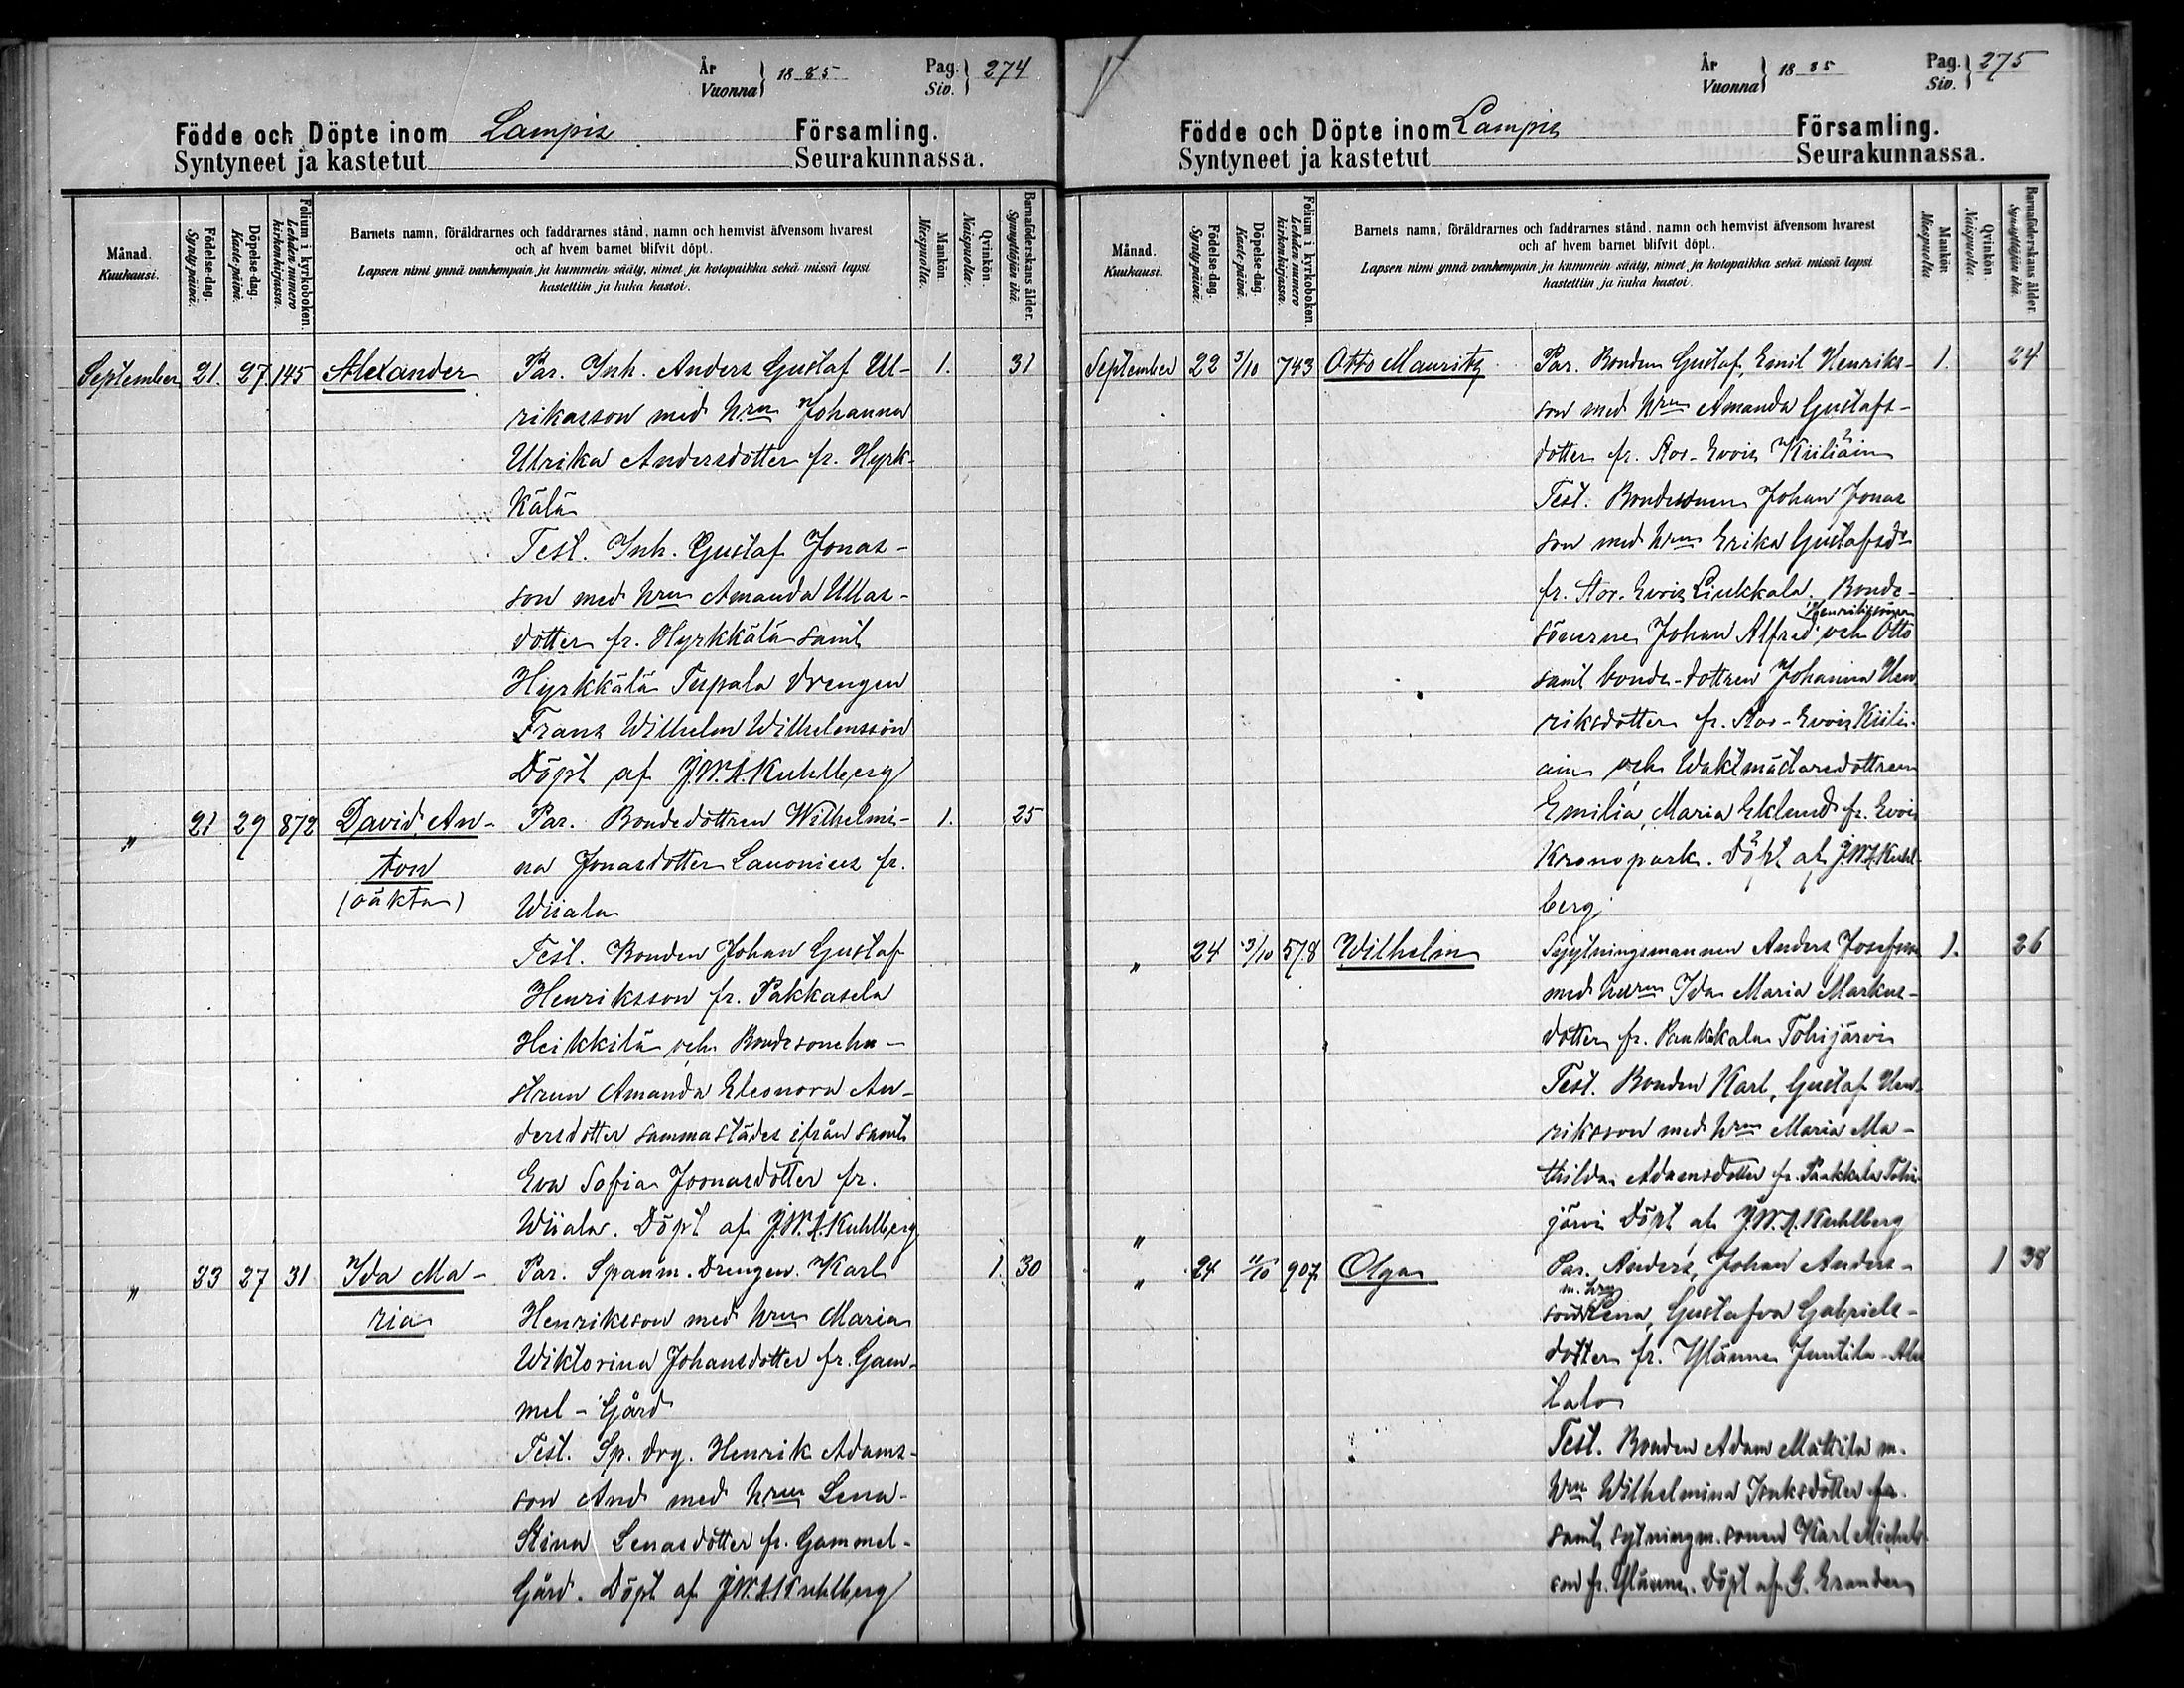 År
Vuonna
1885
Pag.
Siv.
274
Födde och Döpte inom Lampis Församling.
Syntyneet ja kastetut Seurakunnassa.
Månad.
Kuukausi.
Födelse-dag.
Synty-päivä.
Döpelse-dag.
Kaste-päivä.
Folium i kyrkoboken.
Lehden numero kirkonkirjassa.
Barnets namn, föräldrarnes och faddrarnes stånd, namn och hemvist äfvensom hvarest
och af hvem barnet blifvit döpt.
Lapsen nimi ynnä vanhempain ja kummein sääty, nimet ja kotopaikka sekä missä lapsi
kastettiin ja kuka kastoi.
Mankön.
Miespuolta.
Qvinkön.
Naispuolta.
Barnaföderskans ålder.
Synnyttäjän ikä.
September 21. 27. 145 Alexander Par. Inh. Anders Gustaf Ul- 1. 31
riksson med hrun Johanna
Ulrika Andersdotter fr. Hyrk-
kälä
Test. Inh. Gustaf Jonas-
son med hrun Amanda Ullas-
dotter fr. Hyrkkälä samt
Hyrkkälä Tupala drengen
Frans Wilhelm Wilhelmsson
Döpt af J.W.A. Kuhlberg
" 21 29 872 David An- Par. Bondedottren Wilhelmi- 1. 25
ton na Jonasdotter Lauonius fr.
(oäkta) Wiiala
Test. Bonden Johan Gustaf
Henriksson fr. Pakkasela
Heikkilä och Bondesonehu-
strun Amanda Eleonora An-
dersdotter sammastädes ifrån samt
Eva Sofia Joonasdotter fr.
Wiiala. Döpt af J.W.A. Kuhlberg
" 23 27 31 Ida Ma- Par. Spanm. drengen Karl 1. 30
ria Henriksson med hrun Maria
Wiktorina Johansdotter fr. Gam-
mel-Gård
Test. Sp. drg. Henrik Adams-
son And med hrun Lena
Stina Lenasdotter fr. Gammel-
Gård. Döpt af J.W.A. Kuhlberg
År
Vuonna
1885
Pag.
Siv.
275
Födde och Döpte inom Lampis Församling.
Syntyneet ja kastetut Seurakunnassa.
Månad.
Kuukausi.
Födelse-dag.
Synty-päivä.
Döpelse-dag.
Kaste-päivä.
Folium i kyrkoboken.
Lehden numero kirkonkirjassa.
Barnets namn, föräldrarnes och faddrarnes stånd, namn och hemvist äfvensom hvarest
och af hvem barnet blifvit döpt.
Lapsen nimi ynnä vanhempain ja kummein sääty, nimet ja kotopaikka sekä missä lapsi
kastettiin ja kuka kastoi.
Mankön.
Miespuolta.
Qvinkön.
Naispuolta.
Barnaföderskans ålder.
Synnyttäjän ikä.
September 22 3/10 743 Otto Mauritz Par. Bonden Gustaf Emil Henriks- 1. 24
son med hrun Amanda Gustafs-
dotter fr. Stor-Evois Kiiliäin
Test. Bondesonen Johan Jonas
son med hrun Erika Gustafsdr
fr. Stor-Evois Liukkala. Bonde-
sönerne Johan Alfred och Otto
Henrikssöner
samt bonde-dottren Johanna Hen
riksdotter fr. Stor-Evois Kiili-
äin och Waktmästaredottren
Emilia Maria Eklund fr. Evois
Kronopark. Döpt af J.W.A. Kuhl-
berg
" 24 3/10 578 Wilhelm Sytningsmannen Anders Josefsson 1. 26
med hustrun Ida Maria Markus-
dotter fr. Pankkala Tohijärvi
Test. Bonden Karl Gustaf Hen-
riksson med hrun Maria Ma-
thilda Adamsdotter fr. Pankkala Tohi-
järvi Döpt af J.W.A. Kuhlberg
" 24 11/10 907 Olga Par. Anders Johan Anders- 1 38
m. hrun
son Lena Gustafva Gabriels-
dotter fr. Ylänne Juntila-Ala
talo
Test. Bonden Adam Mattila m.
hrun Wilhelmina Isaksdotter fr.
samt sytningm. sonen Karl Michels-
son fr. Ylänne. Döpt af G. Erander